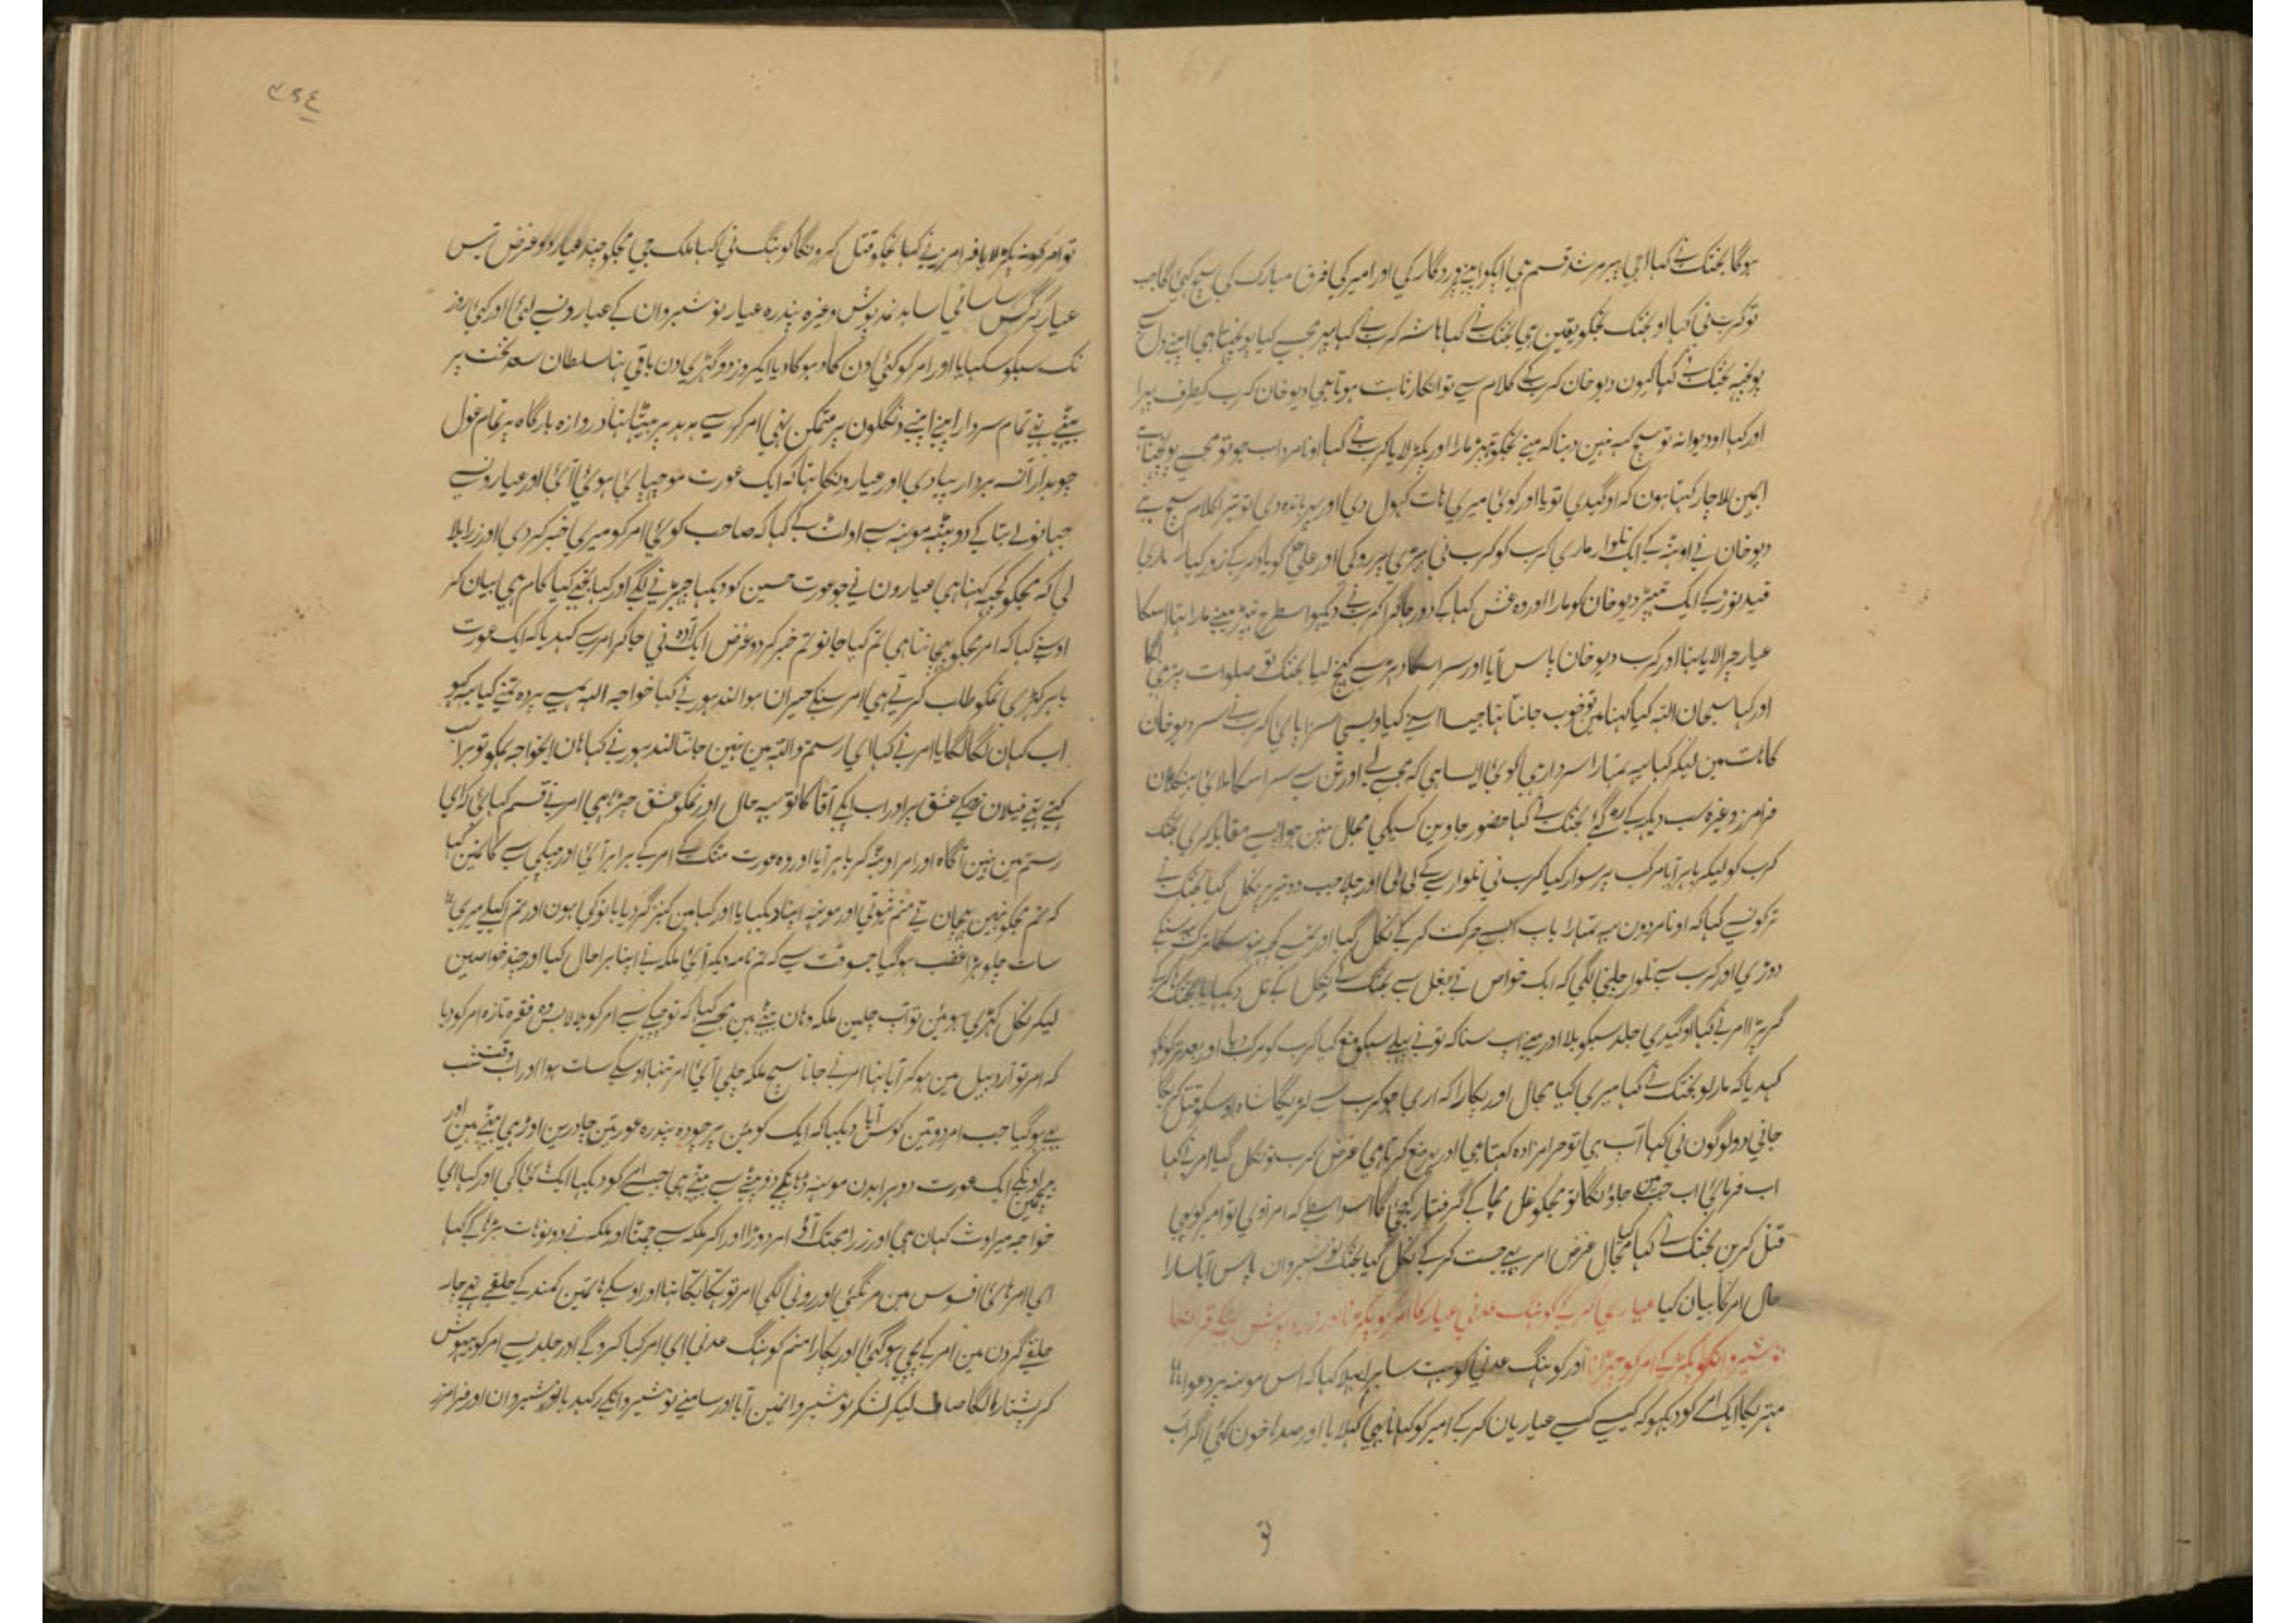 ہوگا بختک نے کہا اجی پیر مرشد قسم ہی اپکو اپنے پروردگار کی اور امیر کی فرق مبارک کی سچ کہی گا جب
تو کرب نی کہا او بختک تجکو یقین ہی بختک نے کہا ہاشہ کرب نے کہا پہر مجسے کیا پوچہتا ہی اپنے دل سے
پوچہیہ بختک نے کہا کیون دیو خان کرب کے کلام سے تو انکار ثابت ہوتا ہی دیو خان کرب کیطرف پہرا
اور کہا او دیوانہ تو سچ کہہ نہین دیتا کہ مینے تجکو تہپڑ مارا اور پکڑ لایا کرب نے کہا او نامرد اب جو تو مجسے پوچہتا ہے
ایمین لاچار کہتا ہون کہ او گیدی تو یا اور کوئی میری ہات کہول دی اور پہر باندہ دی تو تیرا کلام سچ ہے
دیو خان نے اوٹہ کے ایک تلوار ماری کرب کو کرب نی ہتہکڑی پر روکی اور علی علی کو یاد کرکے زور کیا
قید توڑ کے ایک تہپڑ دیو خان کو مارا اور وہ غش کہا کے دور جاگرا کرب نے کہا دیکہو اسطرح تہپڑ مینے مارا تہا اسکا
عیار چرا لایا تہا اور کرب دیو خان پاس آیا اور سر اسکا دہڑ سے کہینچ لیا بختک تو صلوات پڑہنی لگا
اور کہا سبحان اللہ کیا کہنا مین تو خوب جانتا تہا جیسا اسنے کیا ویسی سزا پائی کرب نے سر دیو خان
کا ہات مین لیکر کہا یہ تمہارا سردار ہی کوئی ایسا ہی کہ مجسے لے اور تن سے سر اسکا ملائی
فرامرز وغیرہ سب دیکہ کے رہ گئے بختک نے کہا حضور جاوین کسیکی مجال نہین جو اپسے مقابلہ کری بختک
کرب کو لیکر باہر آیا مرکب پر سوار کیا کرب نی تلوار لی اور چلا جب دو تیر پر نکل گیا بختک نے
ترکون سے کہا کہ او نامردون یہ تمہارا باپ ایسی حرکت کرکے نکل گیا اور تمسے کچہہ نہو سکا ترک یہ سنکے
دوڑی اور کرب سے تلوار چلنی لگی کہ ایک خواص نے بغل سے بختک کے نکل کے
گر پڑا امر نے کہا او گیدی جلد سبکو بلا اور مینے اب سنا کہ تو نے پہلے سبکو منع کیا کرب کو مرکب دیا اور بعد ترکونکو
کہدیا کہ مار لو بختک نے کہا میری کیا مجال اور پکارا کہ اری جو کرب سے لڑیگا شاہ اوسکو قتل کریگا
جانی دو لوگون نی کہا آپ ہی تو حرامزادہ کہتا ہی اور پہر منع کرتا ہی غرض کرب تو نکل گیا امر نے کہا
اب فرمائی اب جب مین جاؤنگا تو مجکو غل مچا کے گرفتار کیجئی گا اسواسطے کہ امر آوی تو امیر کو بہی
قتل کرین بختک نے کہا کیا مجال غرض امر یہ جست کرکے نکل گیا بختک نوشیروان پاس آیا سارا
حال امر کا بیان کیا عیاری کرکے کوہنگ عدنی عیار کا امر کو پکڑنا اور زرد پوش
نوشیروانکو پکڑ کے امر کو چہڑانا اور کوہنگ عدنی کو بہت سا برا بہلا کہا کہ اس مونہہ پر دعوا
مہتریکا ایک امر کو دیکہو کہ کیسے کیسے عیاریان کرکے امیر کو کہانا بہی کہلایا اور صدہا خون کئی اگر اب
تو
۳۶۴
تو امر کو نہ پکڑ لایا فرامرز نے کہا تجکو قتل کرونگا کوہنگ نی کہا ملک جی مجکو چند عیار دو غرض تیس
عیار کرگس ساسانی سابد نمد پوش وغیرہ پندرہ عیار نوشیروان کے عیارون سے لئی اور کئی روز
تک سبکو سکہایا اور امر کو کئی دن کا دہوکا دیا ایکروز دو گہڑی دن باقی تہا سلطان سعد تخت پر
بیٹہے تہے تمام سردار اپنے اپنے دنگلون پر متمکن تہی امر کرسی ہدہد پر بیٹہا تہا دروازہ بارگاہ پر تمام غول
چوبدار آتے بردار پیادی اور عیارونکا تہا کہ ایک عورت مونہہ چہپائی ہوئی آئی اور عیارون سے
جہانو لے بتا کے دوپٹہ مونہہ سے اولٹ کے کہا کہ صاحب کوئی امر کو میری خبر کر دی اور زرا بلا
لی کہ مجکو کچہہ کہنا ہی عیارون نے جو عورت حسین کو دیکہا چہیڑنے لگے اور کہا تجہے کیا کام ہی بیان کر
اوسنے کہا کہ امر مجکو پہچانتا ہی تم کیا جانو تم خبر کر دو غرض ایک آدہ نی جاکر امر سے کہدیا کہ ایک عورت
باہر کہڑی تمکو طلب کرتی ہی امر سنکے حیران ہوا لندہور نے کہا خواجہ اللہ ہمسے پردہ تمنے کیا یہ کہو
اب کہان لگا لگایا امر نے کہا ای رستم واللہ مین نہین جانتا لندہور نے کہا ہان ایخواجہ ہمکو تو برا
کہتے تہے فیلان نصیحت عشق پر اور اب ایکے آقا کا تو یہ حال اور تمکو عشق چڑہا ہی امر نے قسم کہائی کہ ای
رستم مین نہین آگاہ اور امر اوٹہ کر باہر آیا اور وہ عورت مٹک کے امر کے برابر آئی اور چپکی سے کانمین کہا
کہ تم مجکو نہین پہچان تے منم فتوتی اور مونہہ اپنا دیکہایا اور کہا مین کنیز گردیا بانو کی ہون اور تم اکیلے میری
سات چلو بڑا غضب ہوگیا جسوقت سے کہ تم نامہ دیکر آئی ملکہ نے اپنا برا حال کیا اور چند خواصین
لیکر نکل کہڑی ہوئین تو آپ چلین ملکہ وہان بیٹہے ہین مجسے کہا کہ تو چپکے سے امر کو بلا لا بس وہ فقرہ تازہ امر کو دیا
کہ امر تو اردبیل مین ہو کر آیا تہا امر نے جانا سچ ملکہ چلی آئی امر تنہا اوسکے سات ہوا اور اب وقت شب
ہوگیا جب امر دو تین کوس آیا دیکہا کہ ایک کوئین پر چودہ پندرہ عورتین چادرین اوڑہی بیٹہے ہین اور
بیچمین اونکے ایک عورت دوہرا بدن مونہہ ڈہانکے دوپٹے سے بیٹہی ہی جسنے امر کو دیکہا ایک ہائی کی اور کہا ای
خواجہ میرا وارث کہان ہی اور زرا مجتک آئے امر دوڑا اور اکر ملکہ سے چمٹا اور ملکہ نے دونو ہات بڑہا کے کہا
ای امر ہائی افسوس مین مر گئی اور رونی لگی امر تو ہکا بکا تہا اور اوسکے ہاتمین کمند کے حلقے تہے چار
حلقے گردن مین امر کے بہی ہوگئی اور پکارا منم کوہنگ عدنی ای امر کیا کروگے اور جلدیسے امر کو بیہوش
کر پشتارہ لگا صاف لیکر لشکر نوشیروانمین آیا اور سامنے نوشیروانکے رکہدیا نوشیروان اور فرامرز